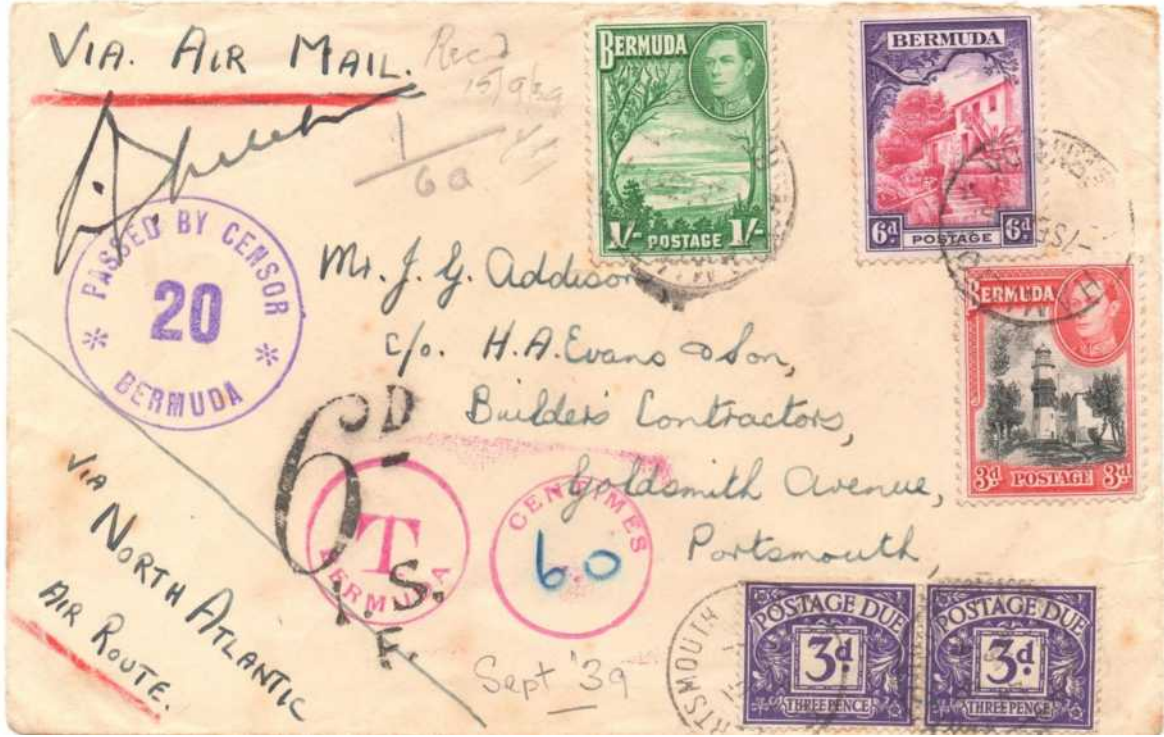 VIA. AIR MAIL.
Rec'd
15/9/39
1
60
BERMUDA
1/- POSTAGE 1/-
BERMUDA
6d. POSTAGE 6d.
BERMUDA
3d POSTAGE 3d
PASSED BY CENSOR
20
BERMUDA
Mr. J. G. Addison
c/o. H.A. Evans & Son,
Builders Contractors,
Goldsmith Avenue,
Portsmouth,
6D
T
BERMUDA
CENTIMES
60
VIA NORTH ATLANTIC
AIR ROUTE.
Sept '39
PORTSMOUTH
POSTAGE DUE
3d.
THREE PENCE
POSTAGE DUE
3d.
THREE PENCE